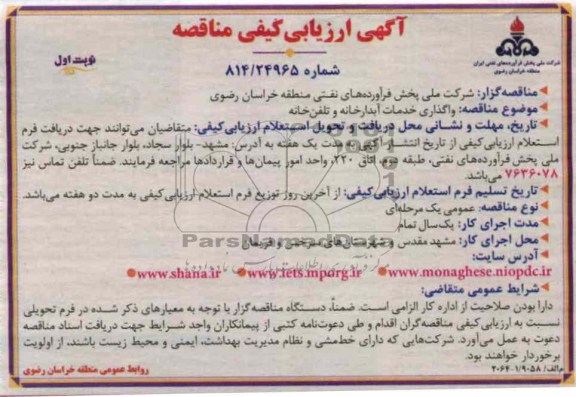 آگهی ارزیابی کیفی مناقصه
نوبت اول
شماره ۸۱۴/۲۴۹۶۵
شرکت ملی پخش فرآورده‌های نفتی ایران
منطقه خراسان رضوی
مناقصه‌گزار: شرکت ملی پخش فرآورده‌های نفتی منطقه خراسان رضوی
موضوع مناقصه: واگذاری خدمات آبدارخانه و تلفن‌خانه
تاریخ، مهلت و نشانی محل دریافت و تحویل استعلام ارزیابی‌کیفی: متقاضیان می‌توانند جهت دریافت فرم
استعلام ارزیابی کیفی از تاریخ انتشار آگهی به مدت یک هفته به آدرس: مشهد- بلوار سجاد، بلوار جانباز جنوبی، شرکت
ملی پخش فرآورده‌های نفتی، طبقه دوم، اتاق ۲۲۰، واحد امور پیمان‌ها و قراردادها مراجعه فرمایند. ضمناً تلفن تماس نیز
۷۶۳۶۰۷۸ می‌باشد.
تاریخ تسلیم فرم استعلام ارزیابی‌کیفی: از آخرین روز توزیع فرم استعلام ارزیابی‌کیفی به مدت دو هفته می‌باشد.
نوع مناقصه: عمومی یک مرحله‌ای
مدت اجرای کار: یک‌سال تمام
محل اجرای کار: مشهد مقدس و شهرستان‌های سرخس و فریمان
ParsNamadData
آدرس سایت:
www.monaghese.niopdc.ir www.iets.mporg.ir www.shana.ir
شرایط عمومی متقاضی:
دارا بودن صلاحیت از اداره کار الزامی است. ضمناً، دستگاه مناقصه‌گزار با توجه به معیارهای ذکر شده در فرم تحویلی
نسبت به ارزیابی‌کیفی مناقصه‌گران اقدام و طی دعوت‌نامه کتبی از پیمانکاران واجد شرایط جهت دریافت اسناد مناقصه
دعوت به عمل می‌آورد. شرکت‌هایی که دارای خط‌مشی و نظام مدیریت بهداشت، ایمنی و محیط زیست باشند، از اولویت
برخوردار خواهند بود.
م‌الف/ ۲۰۶۴۰۱/۹۰۵۸
روابط عمومی منطقه خراسان رضوی